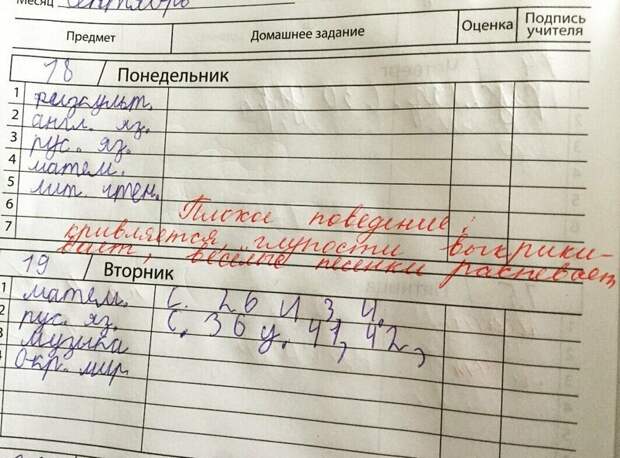 Месяц сентябрь
Предмет Домашнее задание Оценка Подпись учителя
18 / Понедельник
1 физкульт.
2 англ. яз.
3 рус. яз.
4 матем.
5 лит. чтен.
6 Плохое поведение:
7 кривляется, глупости выкрики-
вает, весёлые песенки распевает
19 / Вторник
1 матем. с. 26 и 3, 4.
2 рус. яз. с. 36 у. 41, 42,
3 музыка
4 Окр. мир